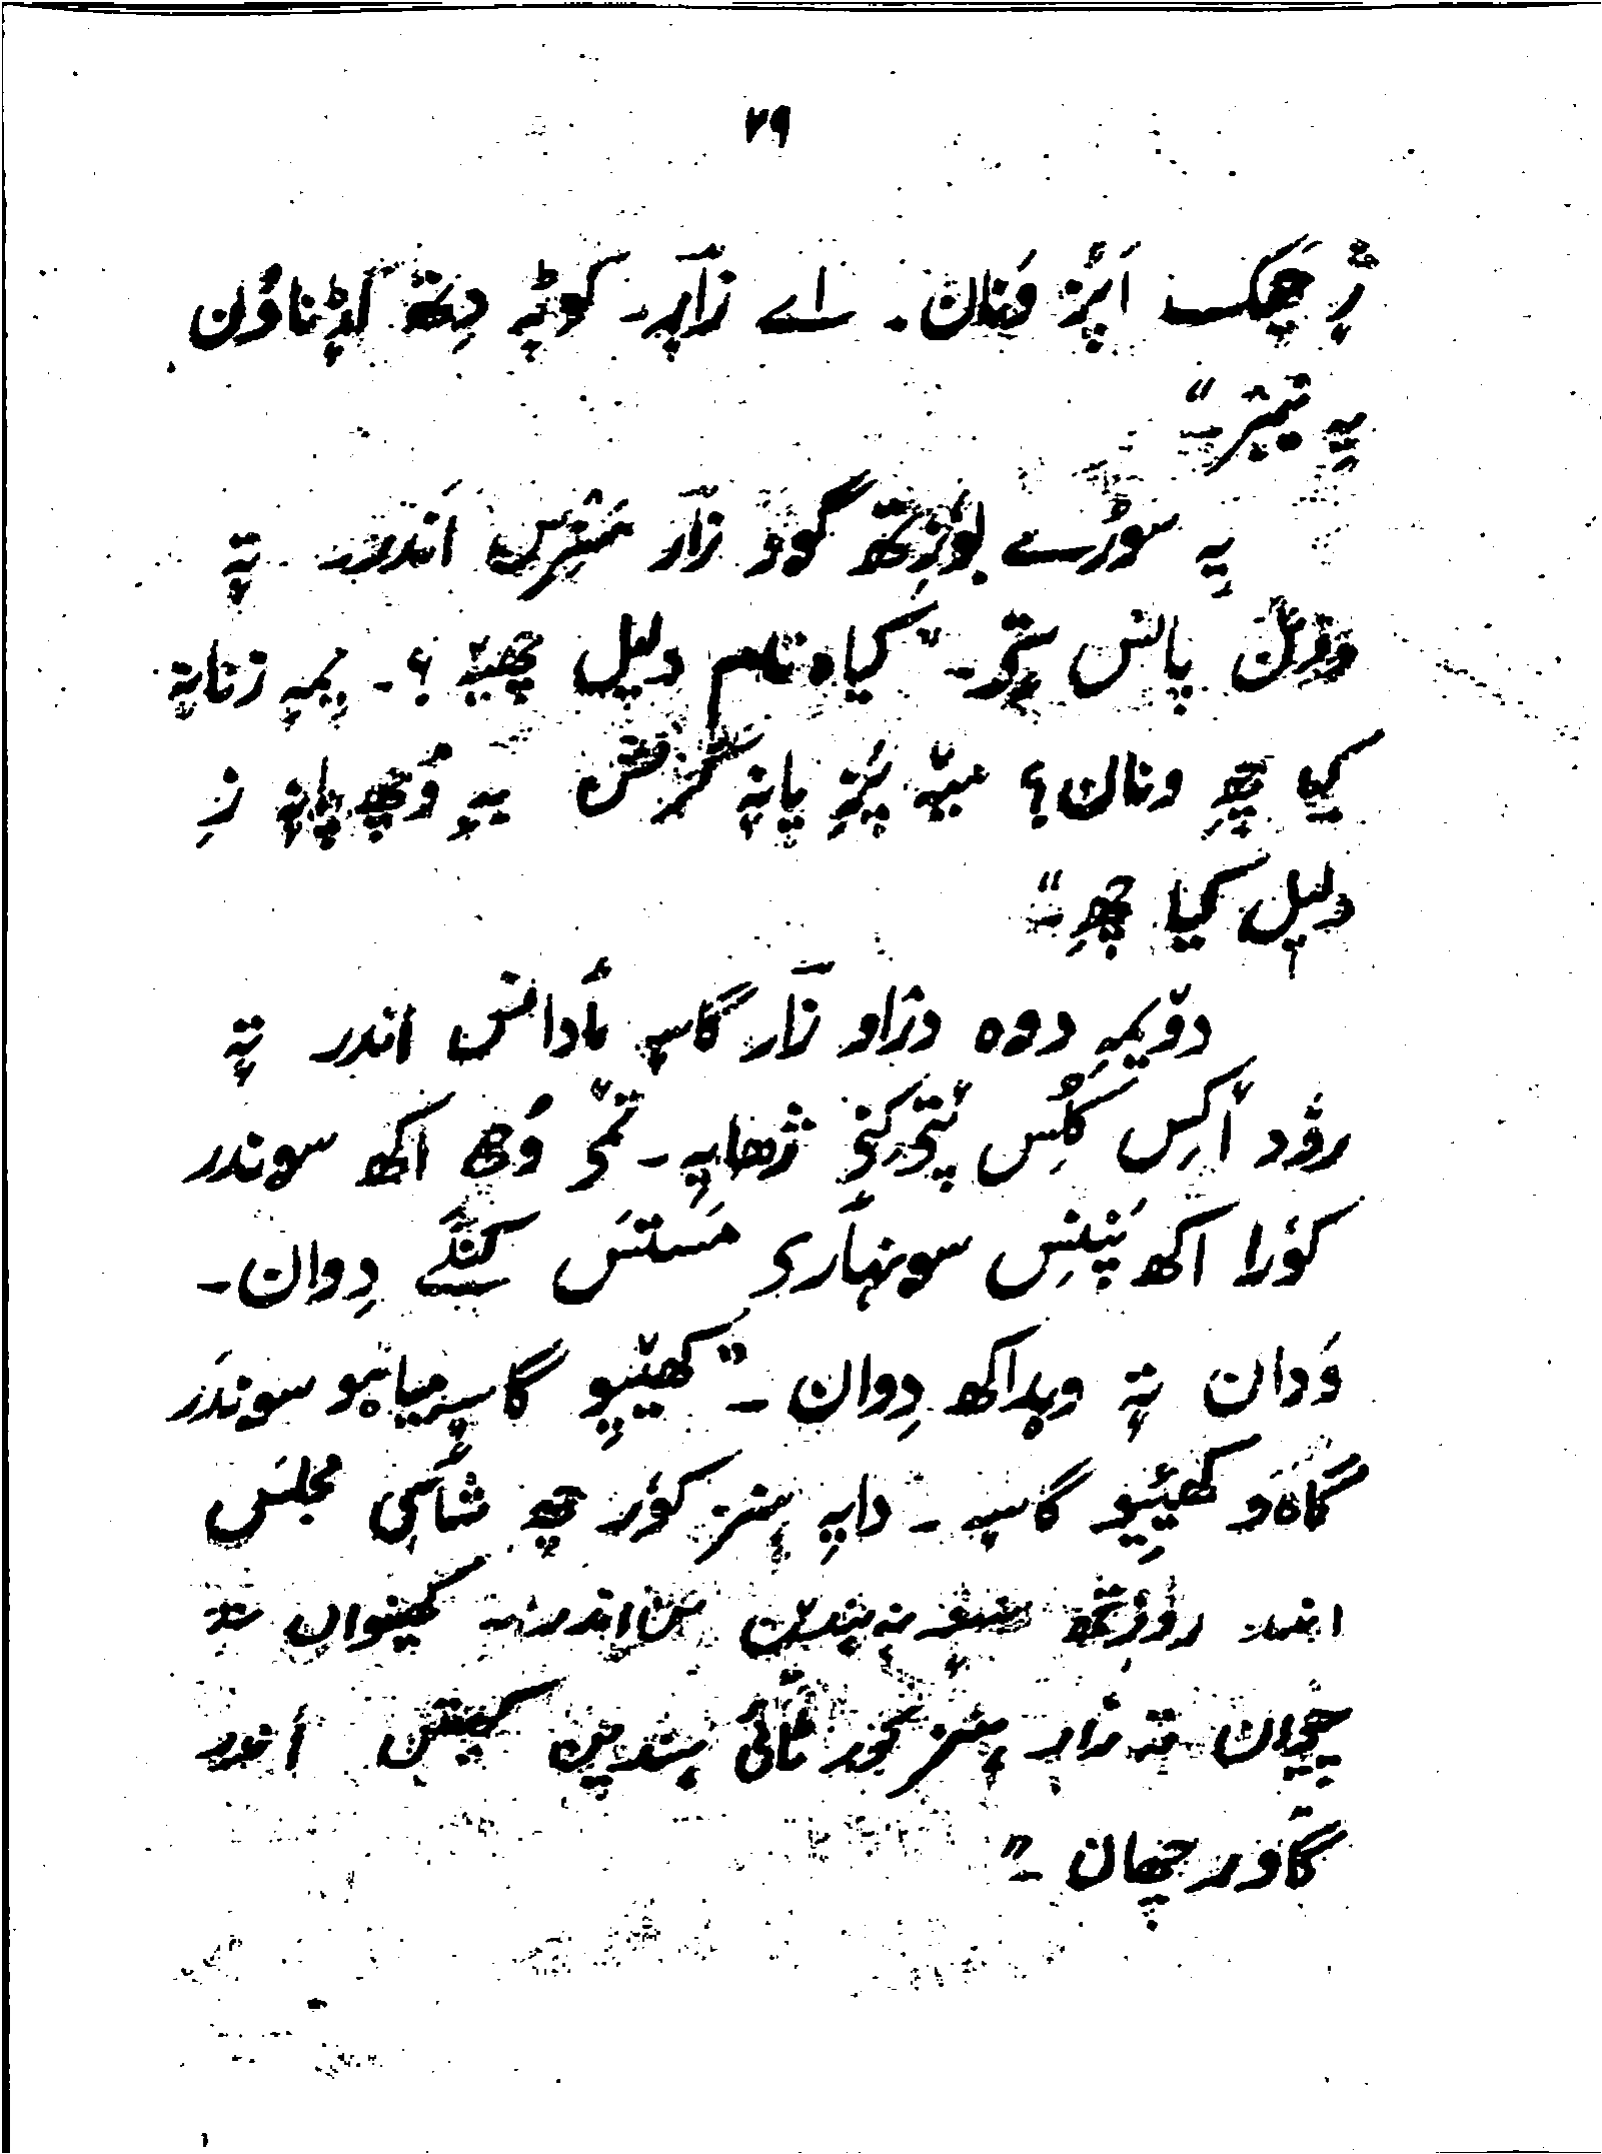 ۷۹
ژٕ چھکَ اَپُز وَنان۔ اے زٲر۔ کوٹہٕ دِتھ کڈناوُن
یہِ تیمتر"
یہِ سوٚرے بوٗزِتھ گوو زٲر مَنٛزِس اَندر۔ تہٕ
وۄنُن پانس سٟتۍ۔ "کیاہ تام دلیل چھیہٕ ؟۔ یِمہٕ زنانہٕ
کیا چھِ ونان؟ میٚہ پَزِ پانہٕ یہِ وُچھ پانہٕ زِ
دلیل کیا چھِ۔"
دۆیمہِ دوہ دژاو زٲر گاسہٕ مٲدانس اندر تہٕ
روٗد أکِس کُلِس پٔتۍ کِنۍ ژھایہِ۔ تٔمۍ وُچھ اکھ سوندر
کوٗرا اکھ پَننِس سونہٲری مَستَس کنگے دِوان۔
وَدان تہٕ ویداکھ دِوان۔ "کھیٚیِو گاسہٕ میانیو سوندَر
گاوَو کھیٚیِو گاسہٕ۔ دایہِ ہنز کوٗر چھِ شٲہی مجلسَ
اندر روٗزِتھ اندر۔ کھیٚوان تہٕ
چیٚوان تہٕ زٲر ہنز کوٗر اندر
گاوٕ رچھان۔"